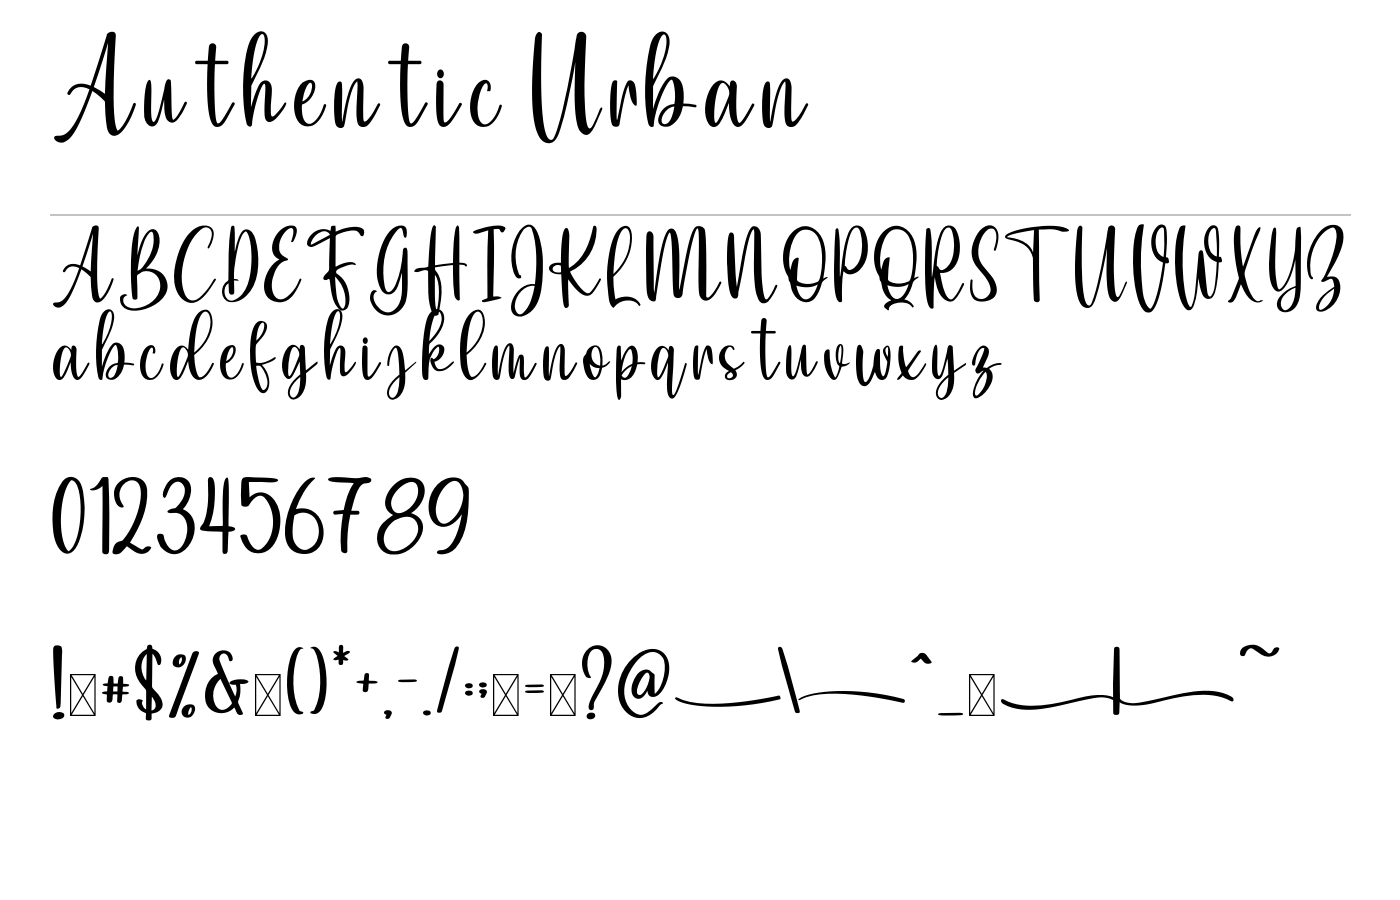 Authentic Urban
ABCDEFGHIJKLMNOPQRSTUVWXYZ
abcdefghijklmnopqrstuvwxyz
0123456789
!#$%&()*+,-./:;=?@\^_|~